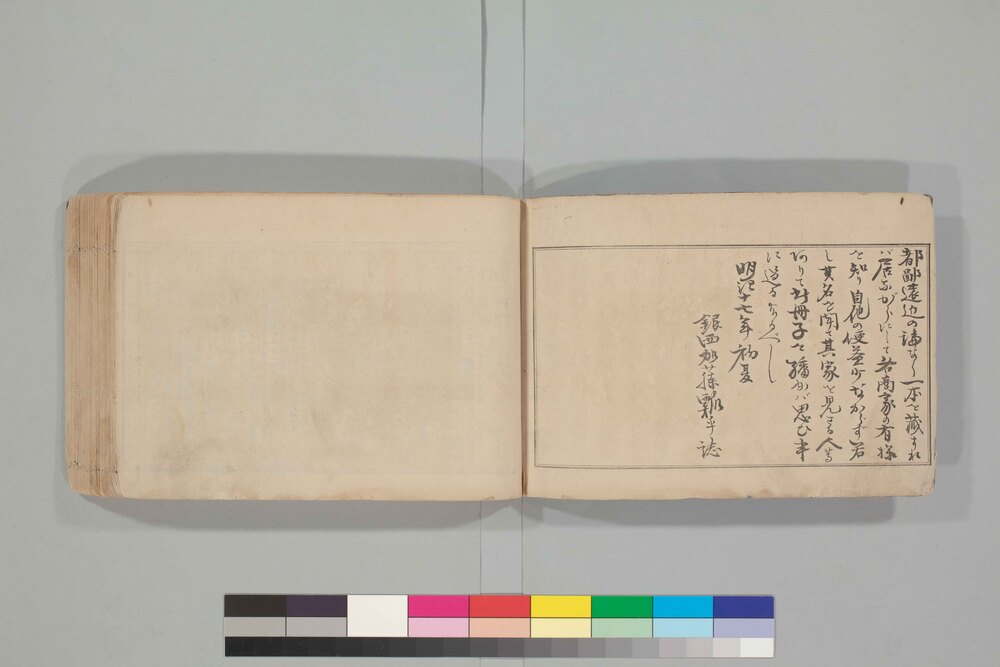 都鄙遠近の論なく一本を蔵すれ
バ居ながらにして各商家の有様
を知り自他の便益少なからず若
し其名を聞て其家を見ざる人等
ありて此冊子を繙かバ思ひ半
に過るなるべし
明治十七年初夏
銀西 誌